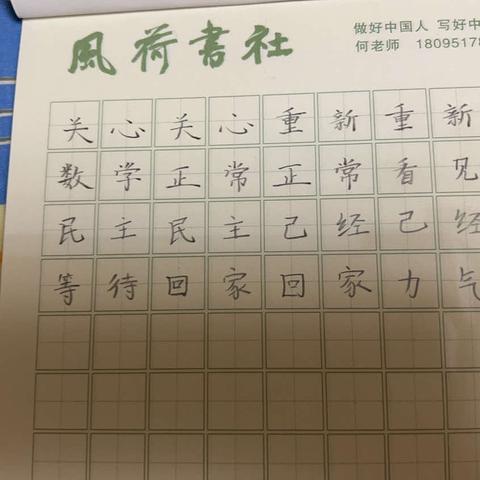 風荷書社
做好中国人 写好中
何老师 18095178
关心关心重新重新
数学正常正常看见
民主民主己经己经
等待回家回家力气